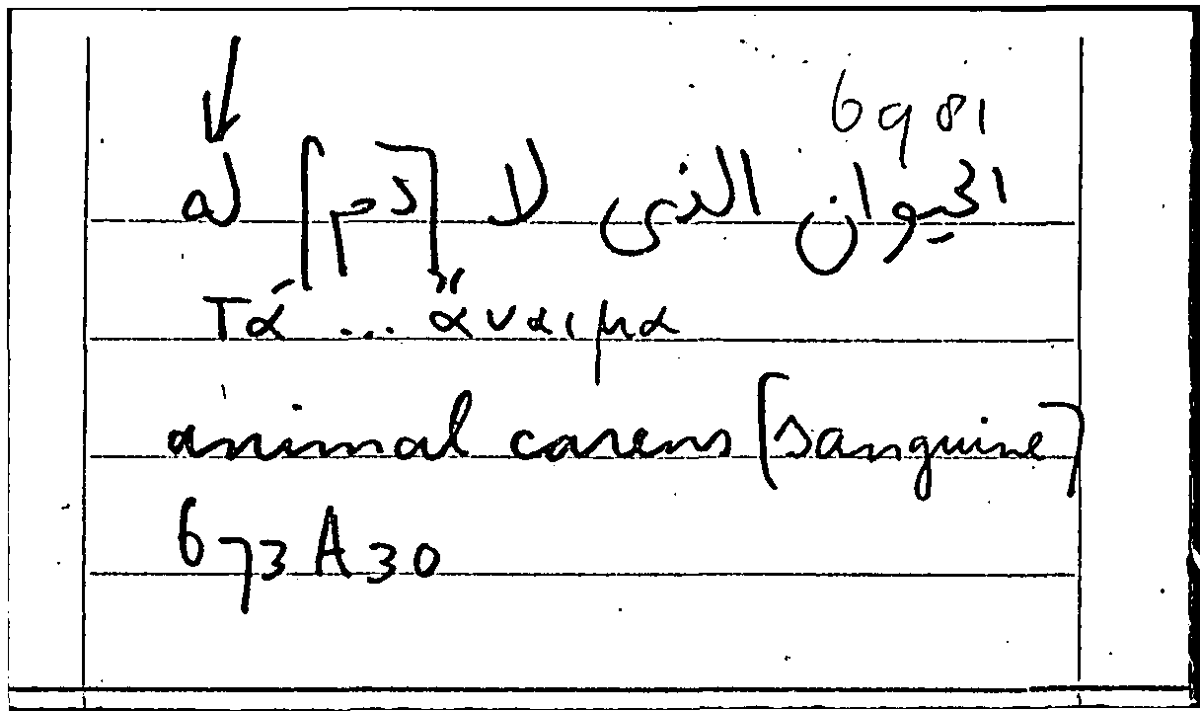 6981
الحيوان الذى لا [دم] له
Τά ... ἄναιμα
animal carens [sanguine]
673 A 30